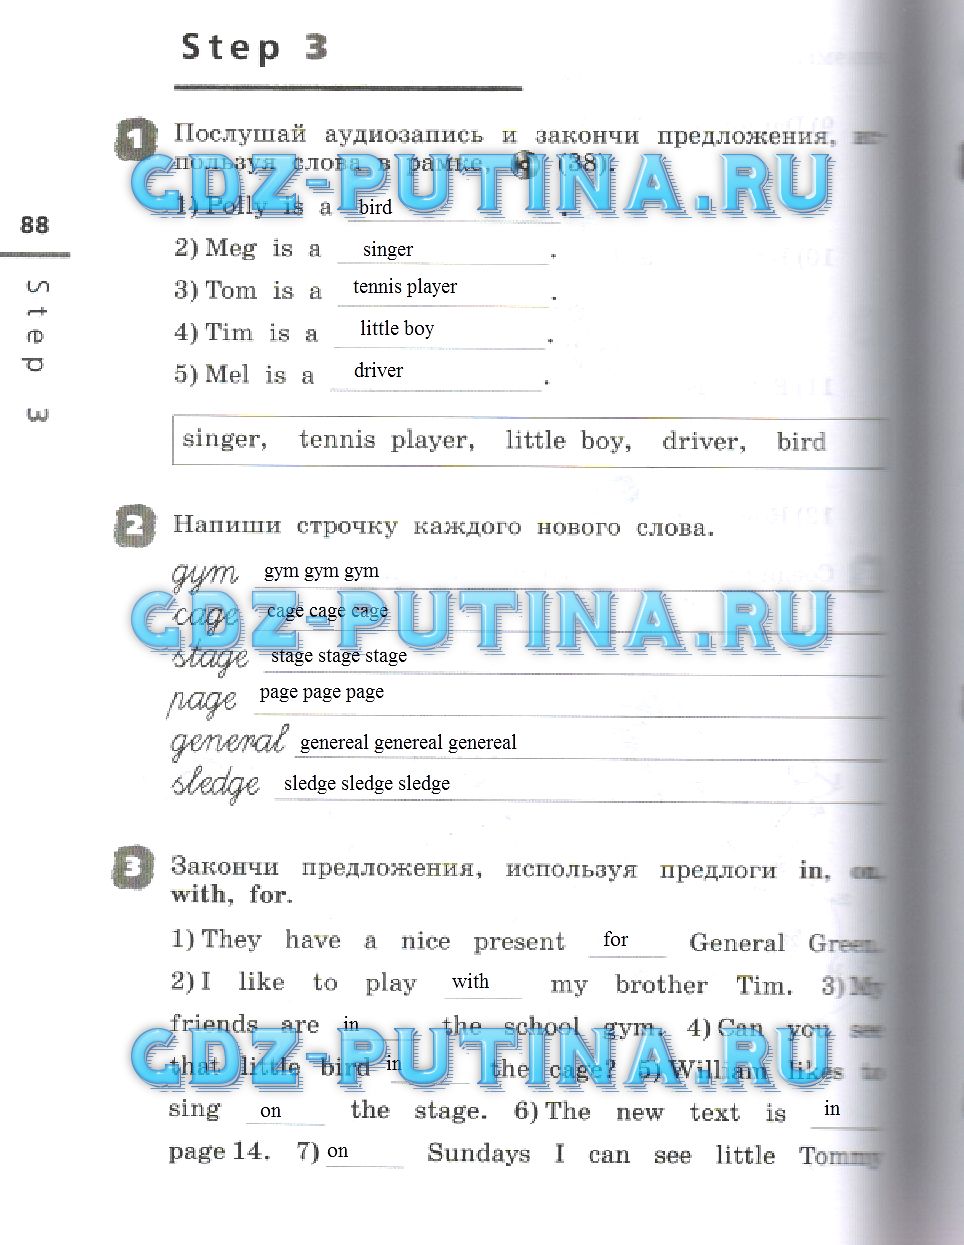 Step 3
1 Послушай аудиозапись и закончи предложения, ис-
пользуя слова в рамке. (38).
GDZ-PUTINA.RU
1) Polly is a bird.
88
2) Meg is a singer.
3) Tom is a tennis player.
Step 3
4) Tim is a little boy.
5) Mel is a driver.
singer, tennis player, little boy, driver, bird
2 Напиши строчку каждого нового слова.
gym gym gym gym
cage cage cage cage
GDZ-PUTINA.RU
stage stage stage stage
page page page page
general genereal genereal genereal
sledge sledge sledge sledge
3 Закончи предложения, используя предлоги in, on,
with, for.
1) They have a nice present for General Green.
2) I like to play with my brother Tim. 3) My
friends are in the school gym. 4) Can you see
GDZ-PUTINA.RU
that little bird in the cage? 5) William likes to
sing on the stage. 6) The new text is in
page 14. 7) on Sundays I can see little Tommy